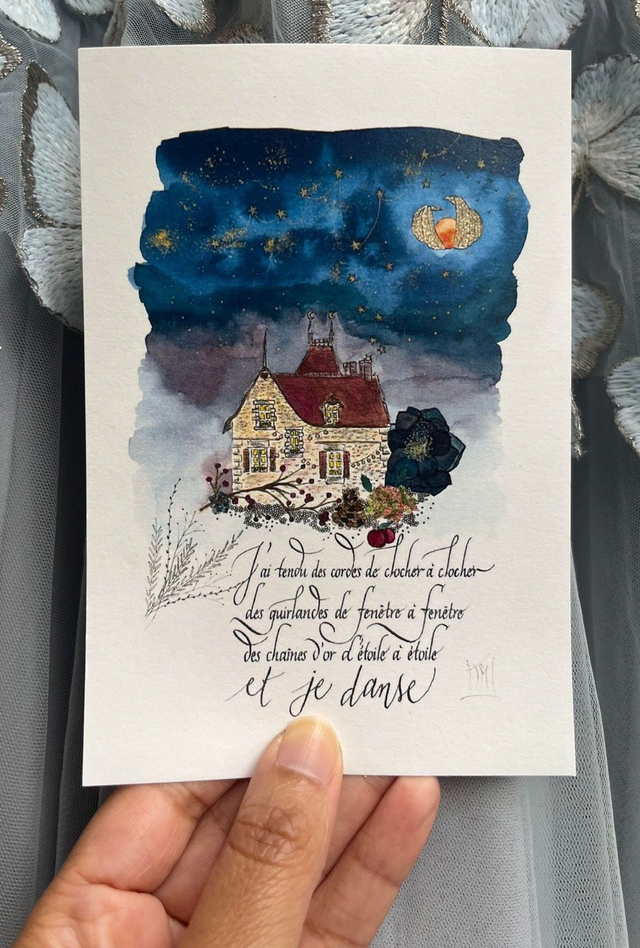 J'ai tendu des cordes de clocher à clocher
des guirlandes de fenêtre à fenêtre
des chaînes d'or d'étoile à étoile
et je danse